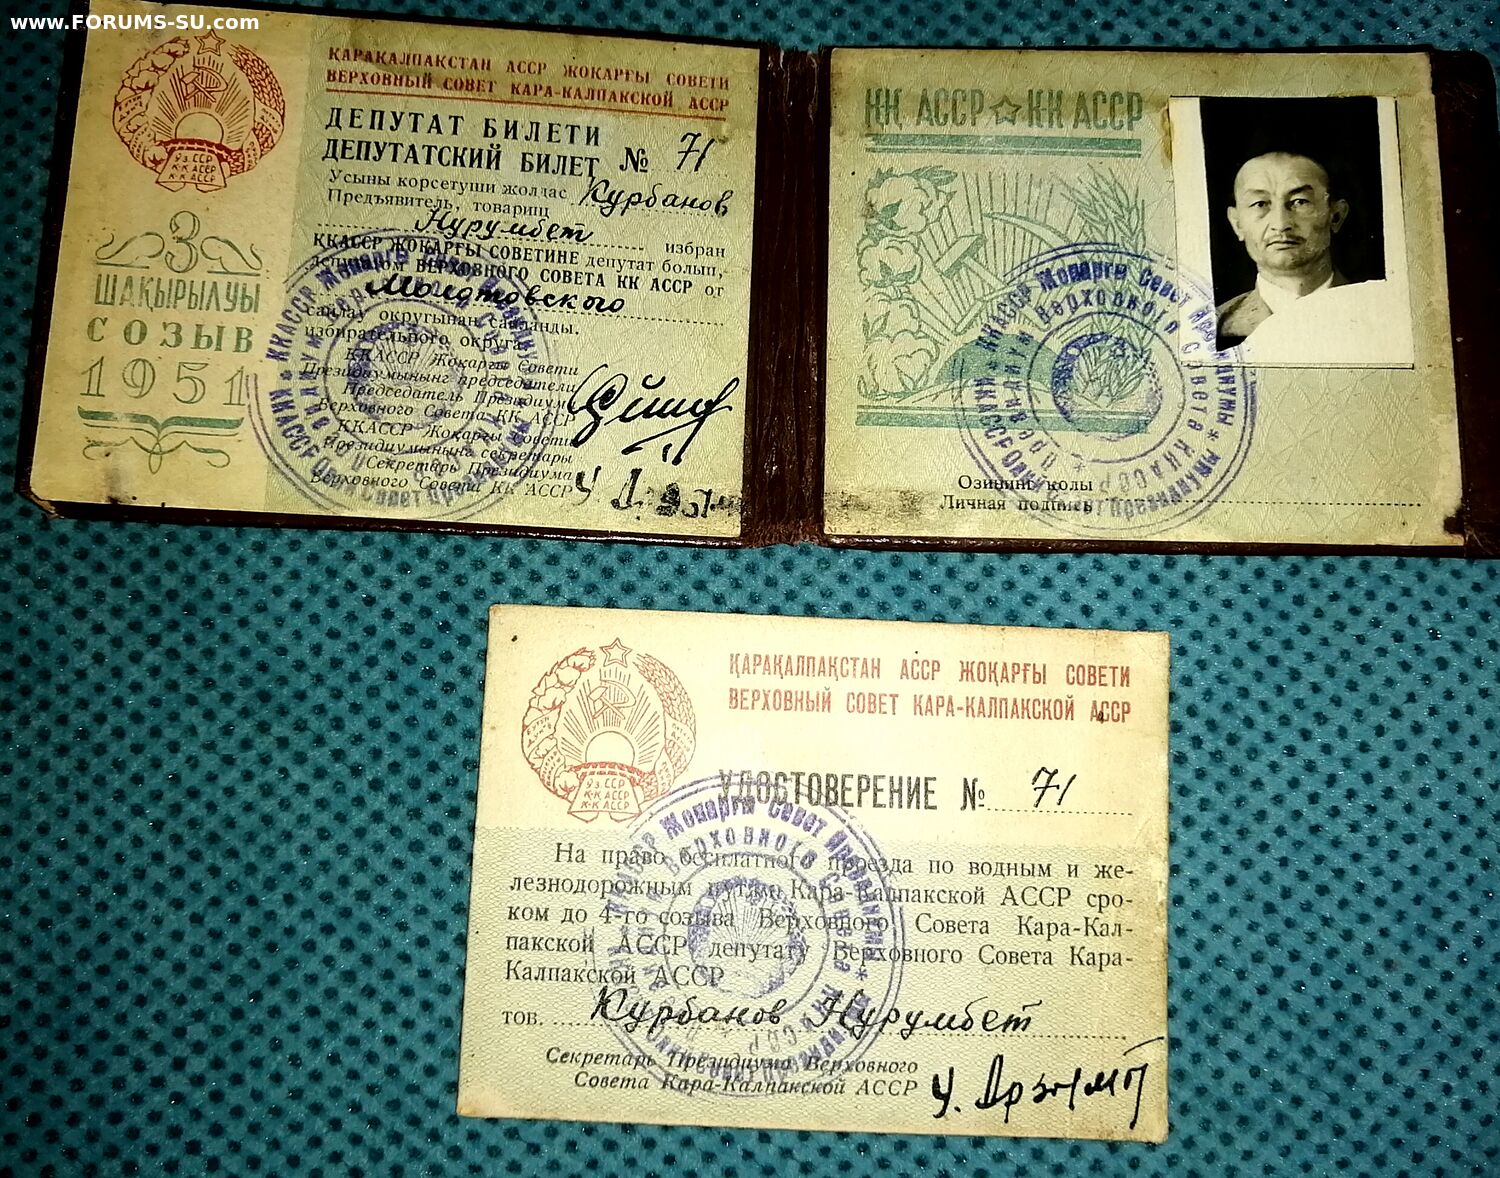 www.FORUMS-SU.com
ҚАРАҚАЛПАҚСТАН АССР ЖОҚАРҒЫ СОВЕТИ
ВЕРХОВНЫЙ СОВЕТ КАРА-КАЛПАКСКОЙ АССР
ДЕПУТАТ БИЛЕТИ
ДЕПУТАТСКИЙ БИЛЕТ № 71
Усыны корсетуши жолдас
Предъявитель, товарищ Курбанов
Нурумбет избран
ҚҚАССР ЖОҚАРҒЫ СОВЕТИНЕ депутат болып,
депутатом ВЕРХОВНОГО СОВЕТА КК АССР от
Молотовского
сайлау округынан сайланды.
избирательного округа.
ҚҚАССР Жоқарғы Совети
Президиумынынг председатели
Председатель Президиума
Верховного Совета КК АССР
ҚҚАССР Жоқарғы Совети
Президиумынынг секретары
Секретарь Президиума
Верховного Совета КК АССР
Уз. ССР
К-К АССР
К-К АССР
3
ШАҚЫРЫЛУЫ
СОЗЫВ
1951
ҚҚ АССР ☆ КК АССР
Озининг қолы
Личная подпись
Уз. ССР
К-К АССР
К-К АССР
ҚАРАҚАЛПАҚСТАН АССР ЖОҚАРҒЫ СОВЕТИ
ВЕРХОВНЫЙ СОВЕТ КАРА-КАЛПАКСКОЙ АССР
УДОСТОВЕРЕНИЕ № 71
На право бесплатного проезда по водным и же-
лезнодорожным путям Кара-Калпакской АССР сро-
ком до 4-го созыва Верховного Совета Кара-Кал-
пакской АССР депутату Верховного Совета Кара-
Калпакской АССР
тов. Курбанов Нурумбет
Секретарь Президиума Верховного
Совета Кара-Калпакской АССР